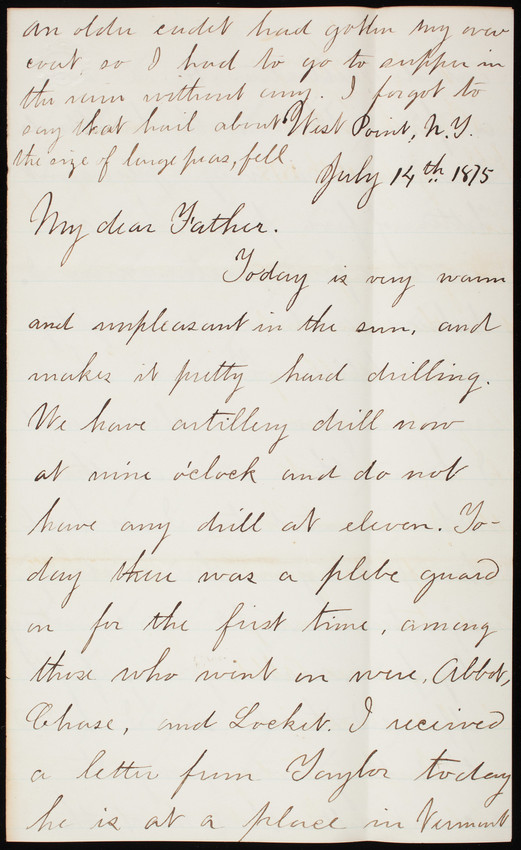 an older cadet had gotten my over
coat, so I had to go to supper in
the rain without any. I forgot to
say that hail about
the size of large peas, fell
West Point, N.Y.
July 14th 1875
My dear Father.
Today is very warm
and unpleasant in the sun, and
makes it pretty hard drilling.
We have artillery drill now
at nine o'clock and do not
have any drill at eleven. To-
day there was a plebe guard
on for the first time, among
those who went on were, Abbot,
Chase, and Locket. I received
a letter from Taylor today
he is at a place in Vermont